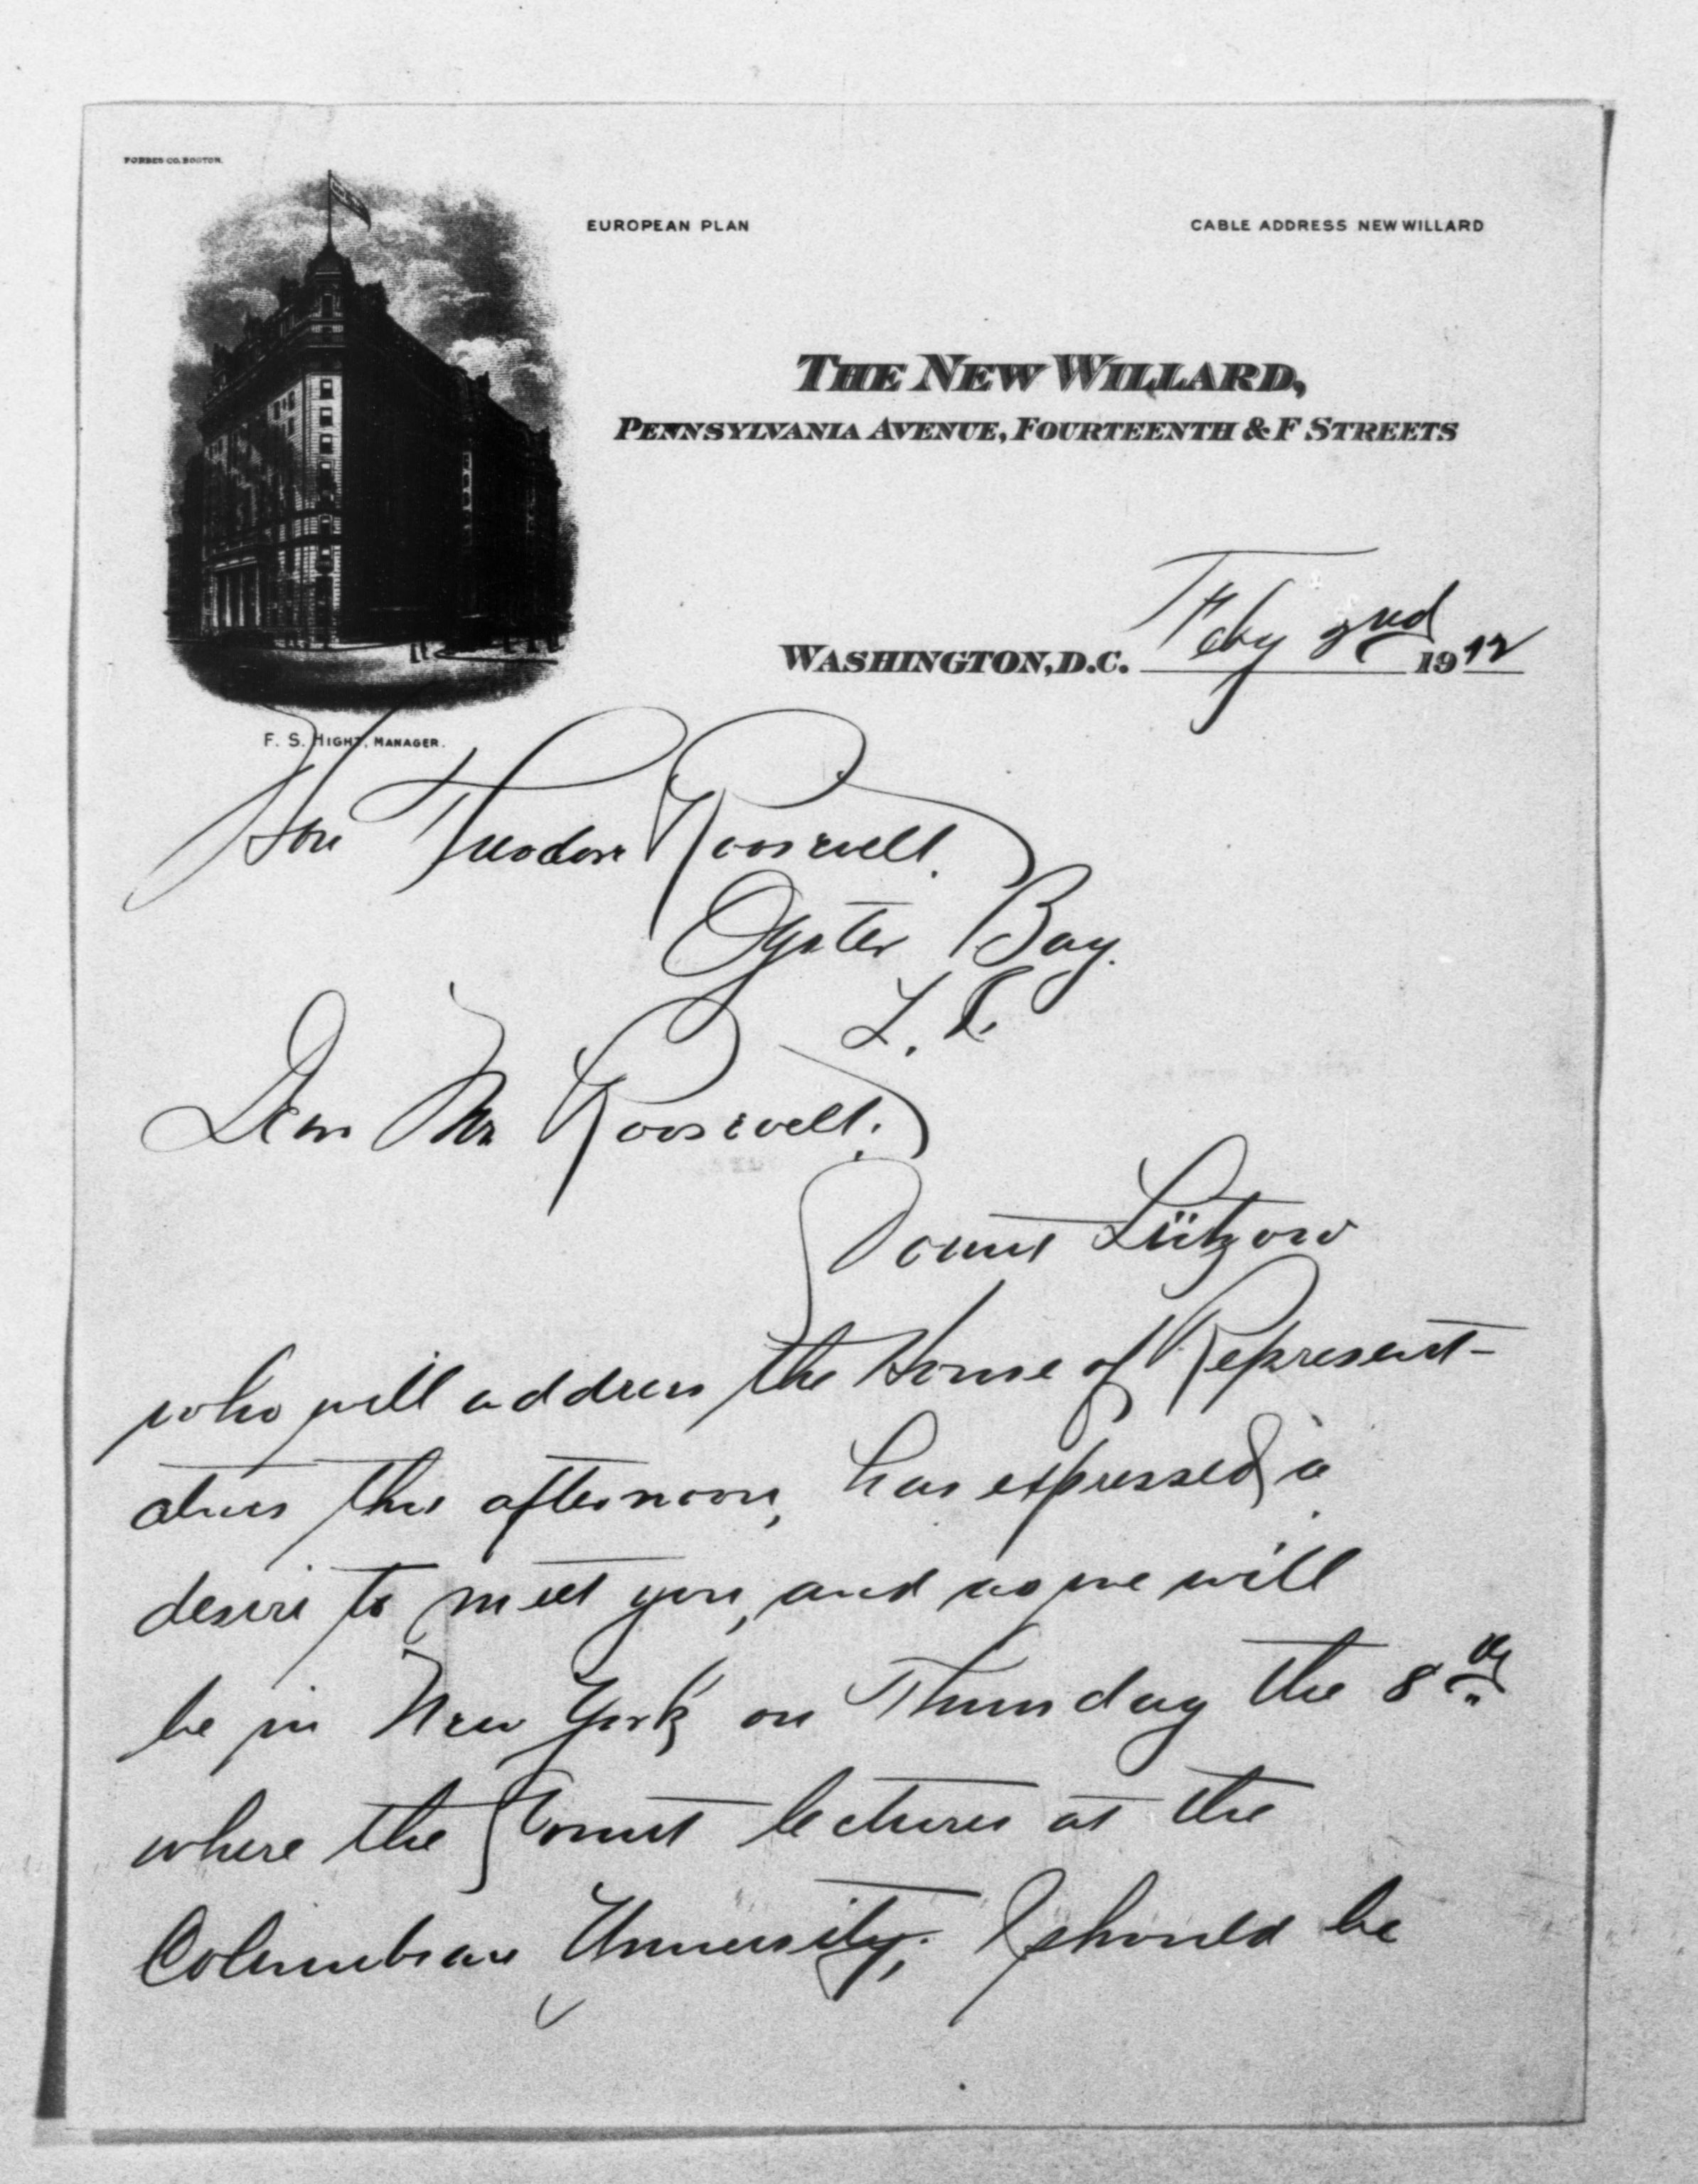 FORBES CO. BOSTON.
EUROPEAN PLAN
CABLE ADDRESS NEW WILLARD
THE NEW WILLARD,
PENNSYLVANIA AVENUE, FOURTEENTH & F STREETS
WASHINGTON, D.C. Feby 2nd 1912
F. S. HIGHT, MANAGER.
Hon Theodore Roosevelt.
Oyster Bay.
L. I.
Dear Mr Roosevelt.
Count Lützow
who will address the House of Represent-
atives this afternoon, has expressed a
desire to meet you, and as we will
be in New York on Thursday the 8th
where the Count lectures at the
Columbian University, I should be